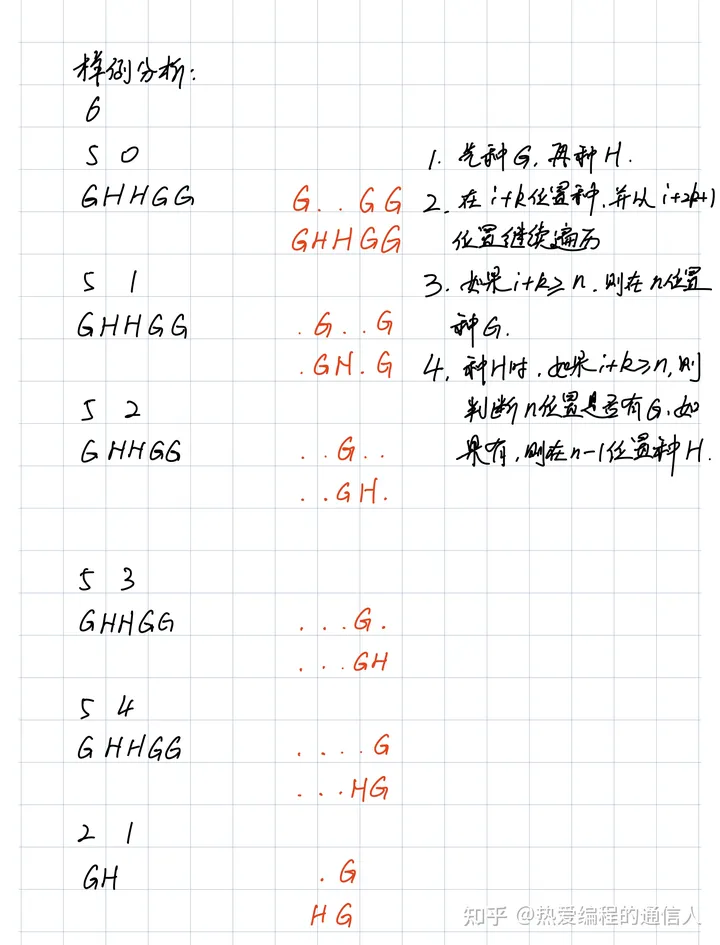 样例分析:
6
5 0
GHHGG
G..GG
GHHGG
5 1
GHHGG
.G..G
.GH.G
5 2
GHHGG
..G..
..GH.
5 3
GHHGG
...G.
...GH
5 4
GHHGG
....G
...HG
2 1
GH
.G
HG
1. 先种G,再种H.
2. 在i+k位置种,并从i+2k+1
位置继续遍历
3. 如果i+k≥n,则在n位置
种G.
4. 种H时,如果i+k≥n,则
判断n位置是否有G,如
果有,则在n-1位置种H.
知乎 @热爱编程的通信人